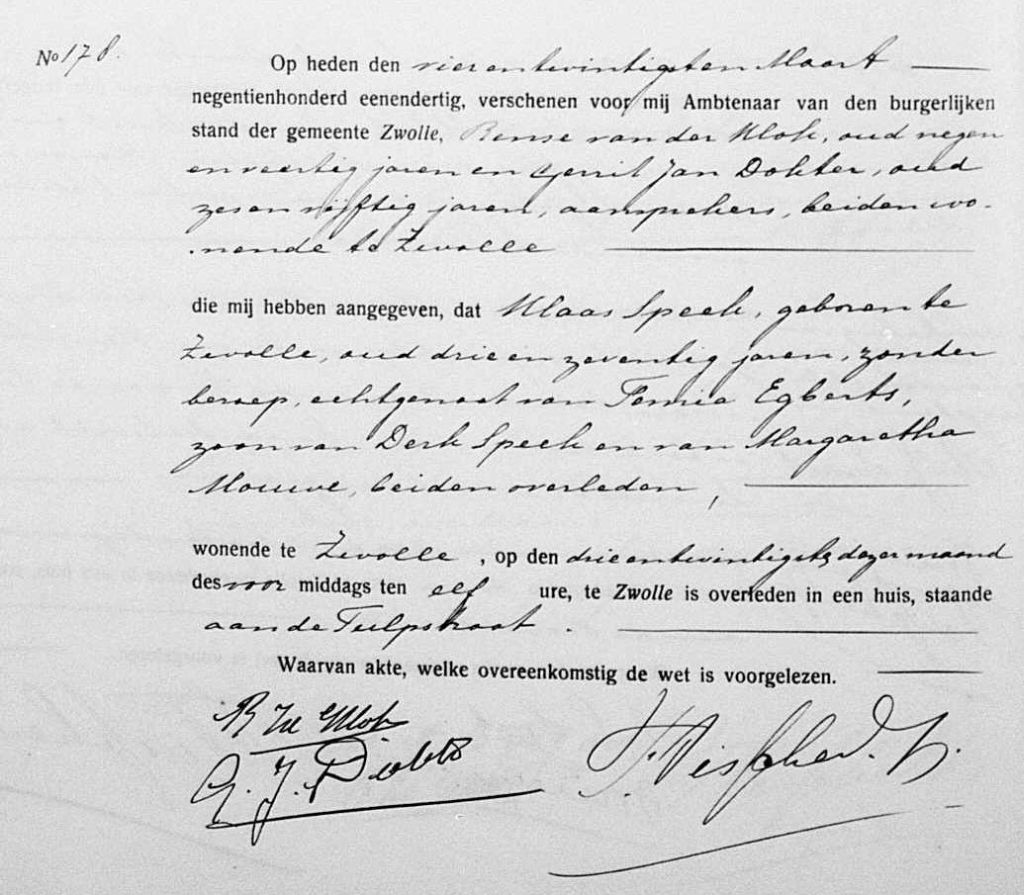 No 178.
Op heden den vier en twintigsten Maart
negentienhonderd eenendertig, verschenen voor mij Ambtenaar van den burgerlijken
stand der gemeente Zwolle, Rense van der Klok, oud negen
en veertig jaren en Gerrit Jan Dokter, oud
zes en vijftig jaren, aansprekers, beiden wo-
nende te Zwolle
die mij hebben aangegeven, dat Klaas Speek, geboren te
Zwolle, oud drie en zeventig jaren, zonder
beroep, echtgenoot van Femia Egberts,
zoon van Derk Speek en van Margaretha
Mouwe, beiden overleden,
wonende te Zwolle, op den drie en twintigste dezer maand
des voor middags ten elf ure, te Zwolle is overleden in een huis, staande
aan de Tulpstraat.
Waarvan akte, welke overeenkomstig de wet is voorgelezen.
Klok
G. J. Dokter